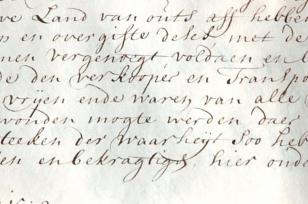 ve Land van outs aff hebbe
en overgifte deses met de
men vergenoegt voldaen en
de den verkooper en Transpo
vrijen ende waren van alle
vonden mogte werden daer
teeken der waarheijt Soo heb
en en bekragtigt hier onde